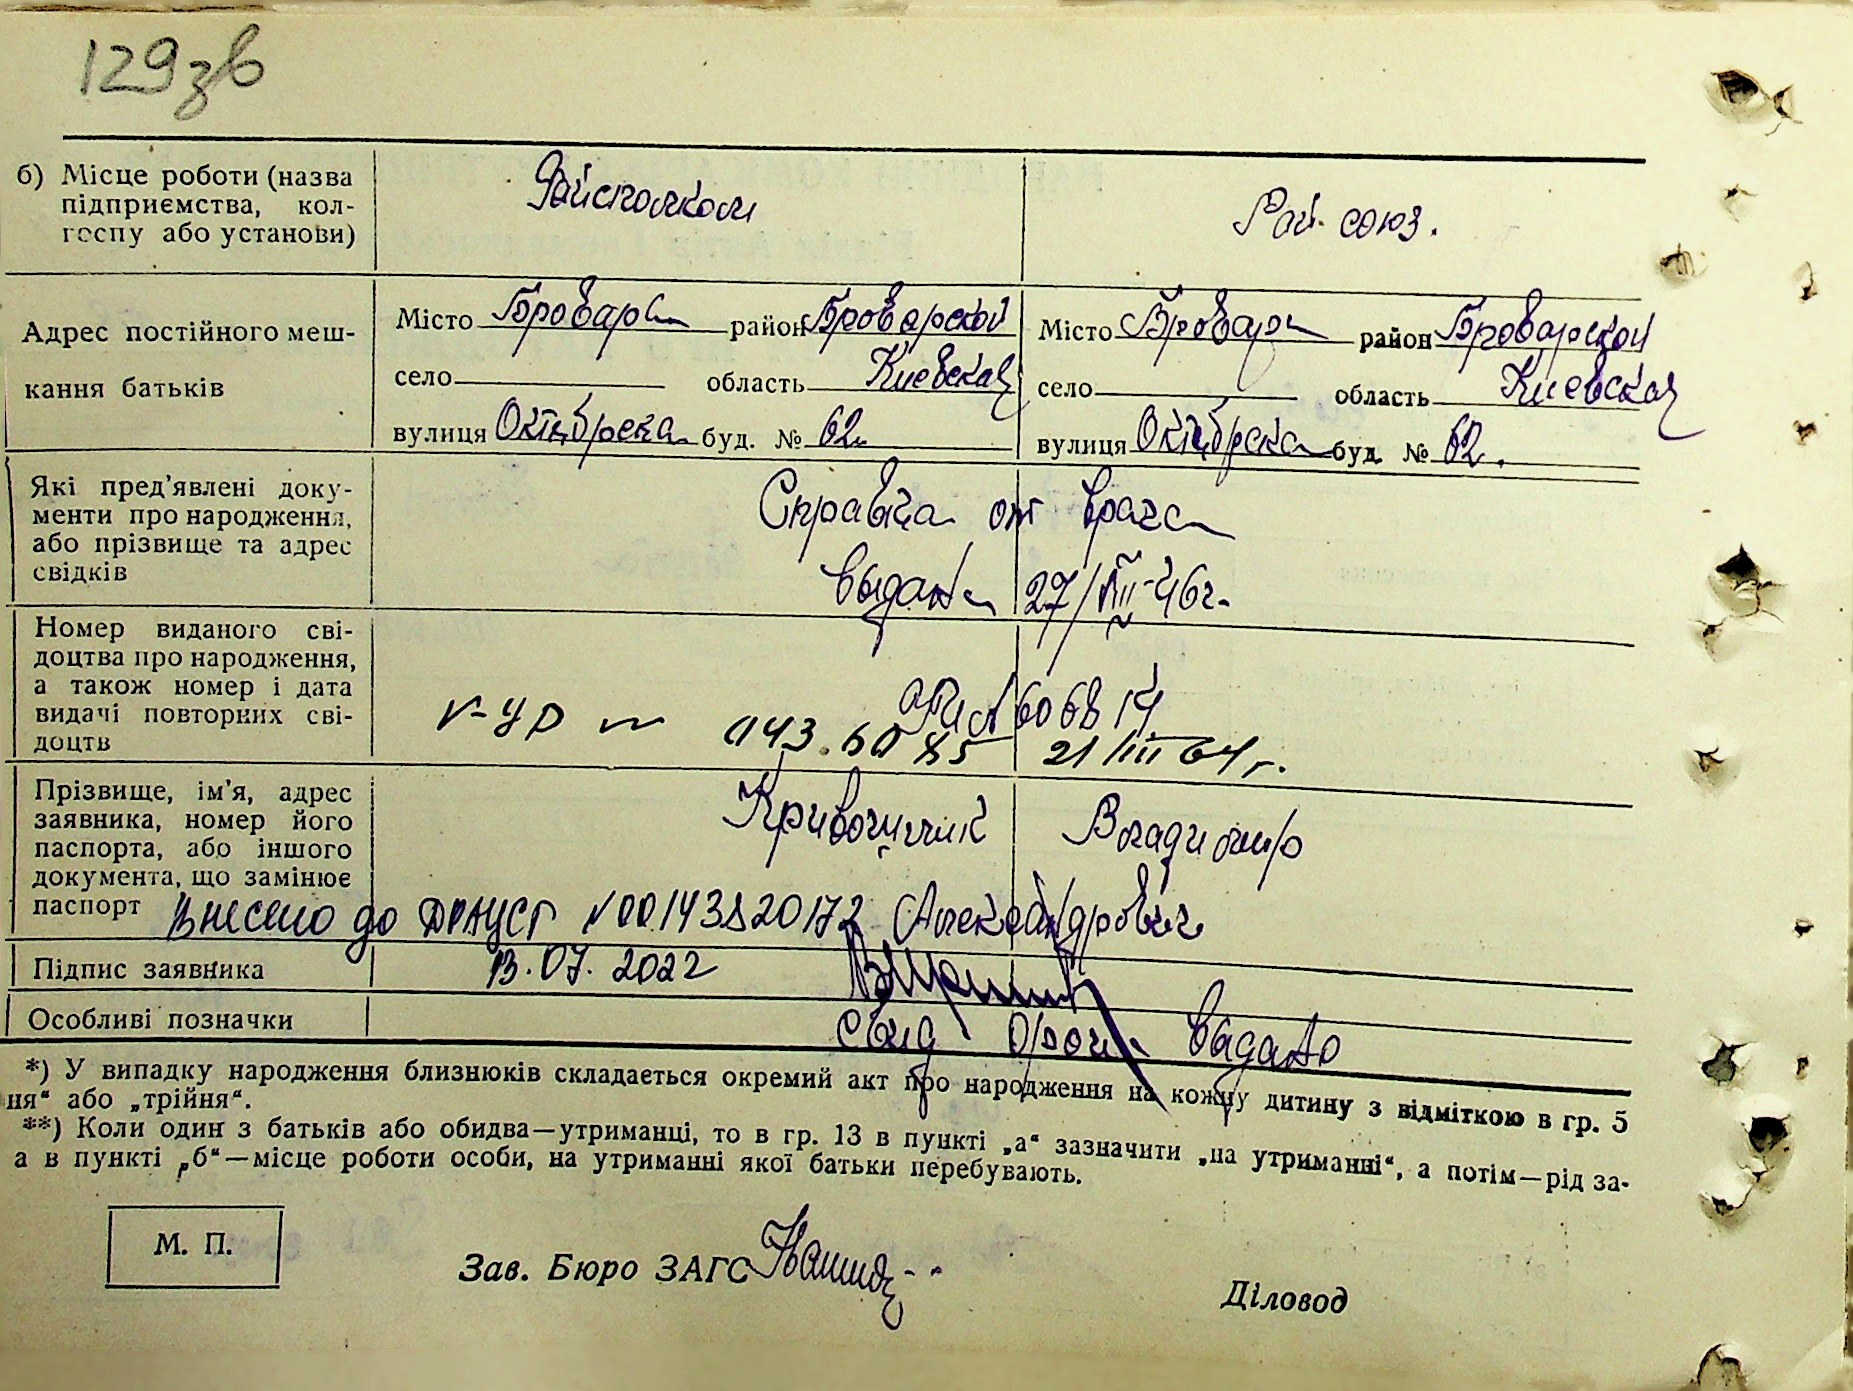 129зв
б) Місце роботи (назва
підприємства, кол-
госпу або установи)
Райсполком
Рай. союз.
Адрес постійного меш-
кання батьків
Місто Бровары район Броварской
село область Киевская
вулиця Октябрска буд. № 62
Місто Бровары район Броварской
село область Киевская
вулиця Октябрска буд. № 62.
Які пред'явлені доку-
менти про народження,
або прізвище та адрес
свідків
Справка от врача
выдана 27/XII-46г.
Номер виданого сві-
доцтва про народження,
а також номер і дата
видачі повторних сві-
доцтв
21/III 64 г.
Прізвище, ім'я, адрес
заявника, номер його
паспорта, або іншого
документа, що замінює
паспорт
Владимир
Александрович
Внесено до ДРАЦСГ №00143820172
13.07.2022
Підпис заявника
Особливі позначки
выдано
*) У випадку народження близнюків складається окремий акт про народження на кожну дитину з відміткою в гр. 5
ня“ або „трійня“.
**) Коли один з батьків або обидва—утриманці, то в гр. 13 в пункті „а“ зазначити „на утриманні“, а потім—рід за-
а в пункті „б“—місце роботи особи, на утриманні якої батьки перебувають.
М. П.
Зав. Бюро ЗАГС
Діловод